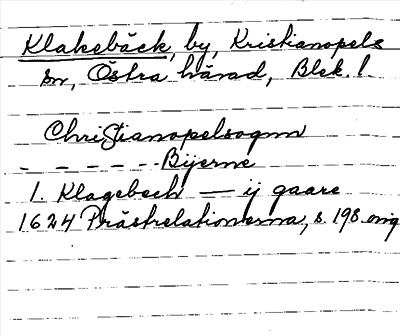 Klakebäck, by, Kristianopels
sn, Östra härad, Blek. l.
Christianopelsognn
- - - - - Bijerne
1. Klagebech — ij gaare
1624 Prästrelationerna, s. 198 omg